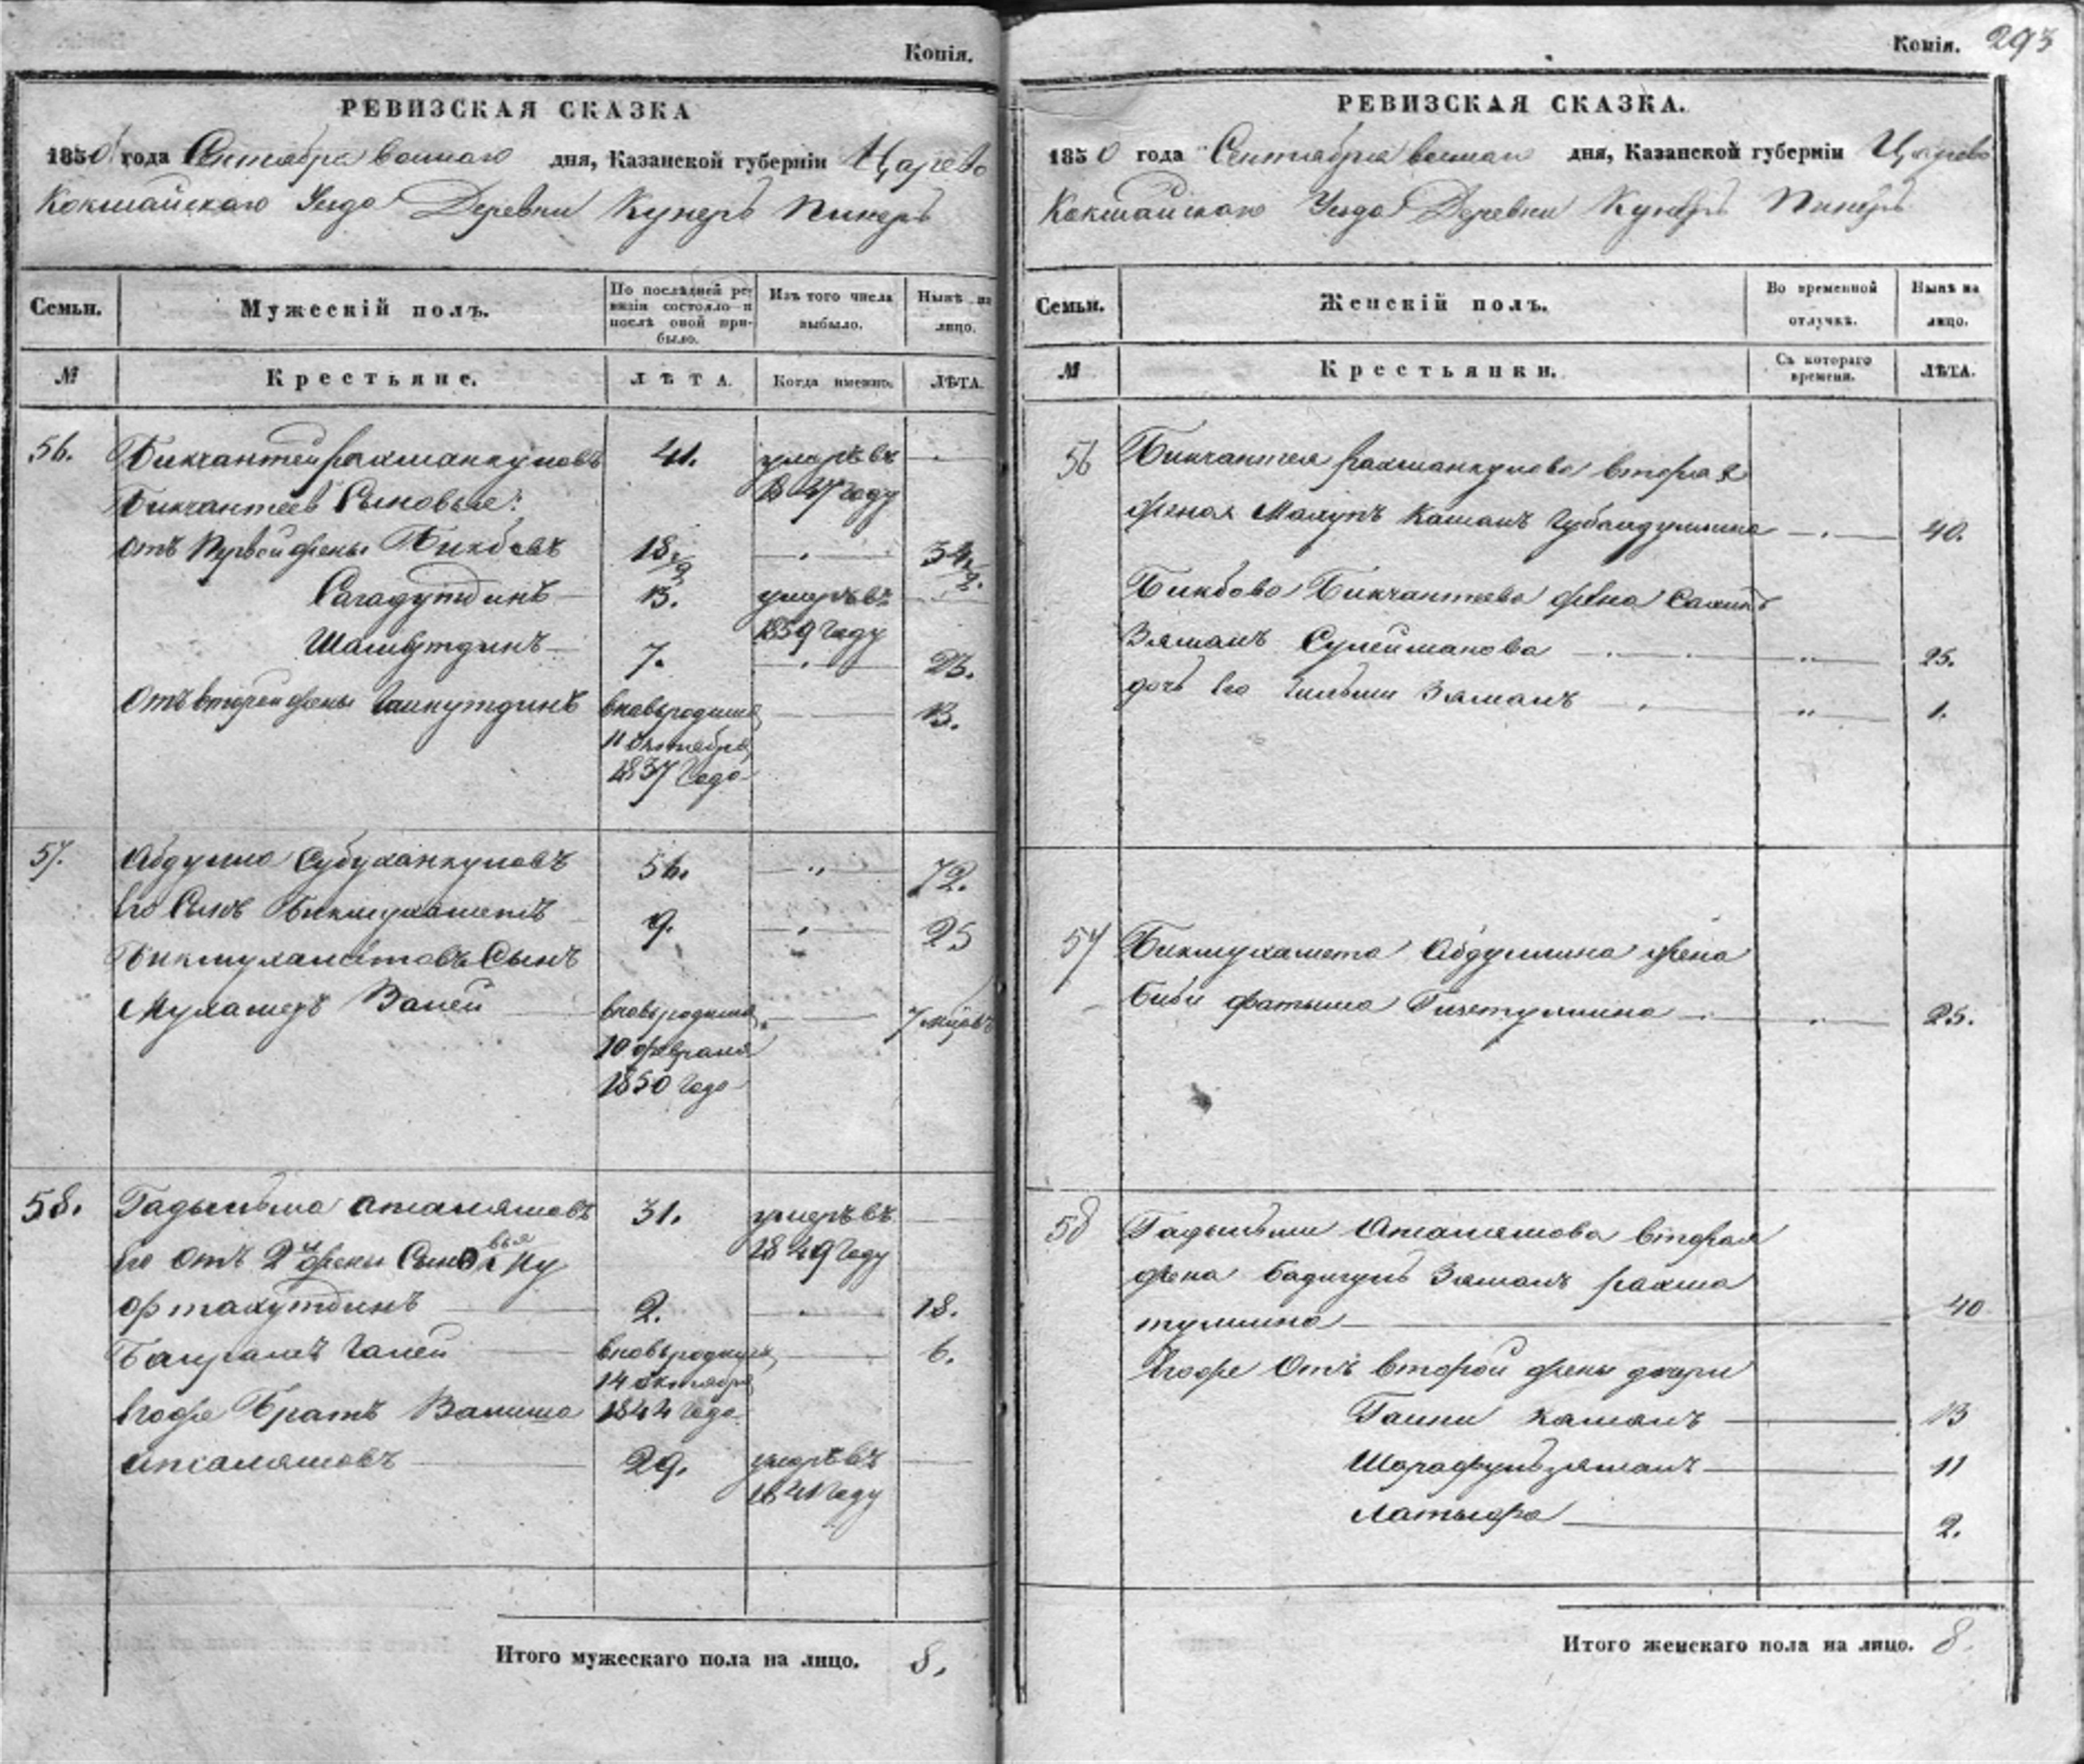 Копія.
РЕВИЗСКАЯ СКАЗКА
1850 года Сентября осмаго дня, Казанской губерніи Царево
Кокшайскаго Уезда Деревни Кунеръ Пинеръ
Семьи. Мужескій полъ. По послѣдней ре- Изъ того числа Нынѣ на
визіи состояло и
послѣ оной при- выбыло. лицо.
было.
№ Крестьяне. ЛѢТА. Когда именно. ЛѢТА.
56. Бикчантей Рахманкуловъ 41. умеръ въ
Бикчантеевъ Сыновье: 1847 году
отъ первой жены Бикбовъ 18 1/2 34 1/2.
Сагадутдинъ 13. умеръ въ
1839 Году
Шамсутдинъ 7. 23.
отъ второй жены вновь родился 13.
11 октября
1837 Года
57. Абдулла Субуханкуловъ 56. 72.
Его Сынъ Бикмухаметъ 9. 25
Бикмухаметовъ Сынъ
Мухамедъ Валей вновь родился 7 мцовъ
10 февраля
1850 Года
58. Гадыльша Аталяшовъ 31. умеръ въ
1849 Году
Его отъ 2й жены Сыновья Ну
фтахутдинъ 2. 18.
Баграмъ Галей вновь родился 6.
14 октября
Егоже Братъ Валиша 1844 Года
Аталяшовъ 29. умеръ въ
1841 Году
Итого мужескаго пола на лицо. 8.
Копія. 293
РЕВИЗСКАЯ СКАЗКА.
1850 года Сентября осмаго дня, Казанской губерніи Царево
Кокшайскаго Уезда Деревни Кунеръ Пинеръ
Семьи. Женскій полъ. Во временной Нынѣ на
отлучкѣ. лицо.
№ Крестьянки. Съ котораго ЛѢТА.
времени.
56 Бикчантея Рахманкулова вторая
жена Камалъ Губайдуллина 40.
Бикбова Бикчантеева жена
Зямалъ Сулейманова 25.
дочь его Зямалъ 1.
57 Бикмухамета Абдуллина жена
Биби фатыма 25.
58 Гадыльши Аталяшова вторая
жена Бадигулъ Зямалъ Рахма
туллина 40
Егоже отъ второй жены дочери
Гайни Камалъ 13
Шарафулъзямалъ 11
Латыфа 2.
Итого женскаго пола на лицо. 8.